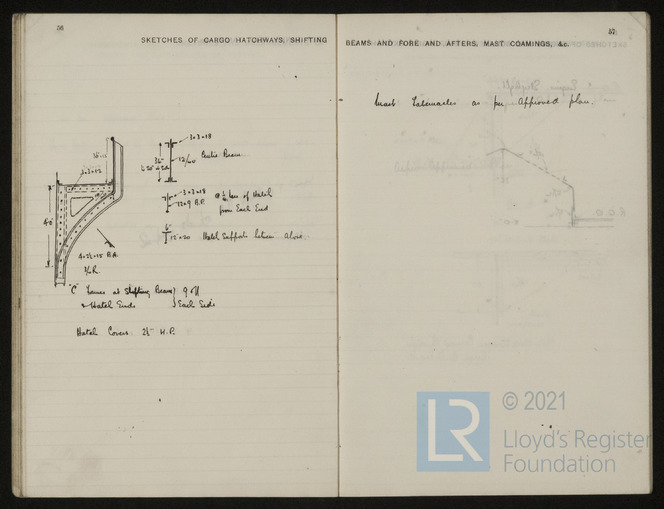 56
SKETCHES OF CARGO HATCHWAYS, SHIFTING
3 x 3 x .18
36"
12/00 Centre Beam
3 x 3 x .12
3 x 3 x .18
12 x .9 B.P.
@ ¼ len of Hatch
from Each End
6"
12 x .20 Hatch Supports between above
4'6"
4 x 2½ x .15 B.A.
"C" Frames at Shifting Beams } 9 off
& Hatch Ends } Each Side
Hatch Covers 2½" W.P.
57
BEAMS AND FORE AND AFTERS, MAST COAMINGS, &c.
Mast Tabernacles as per Approved plan.
LR
© 2021
Lloyd's Register
Foundation